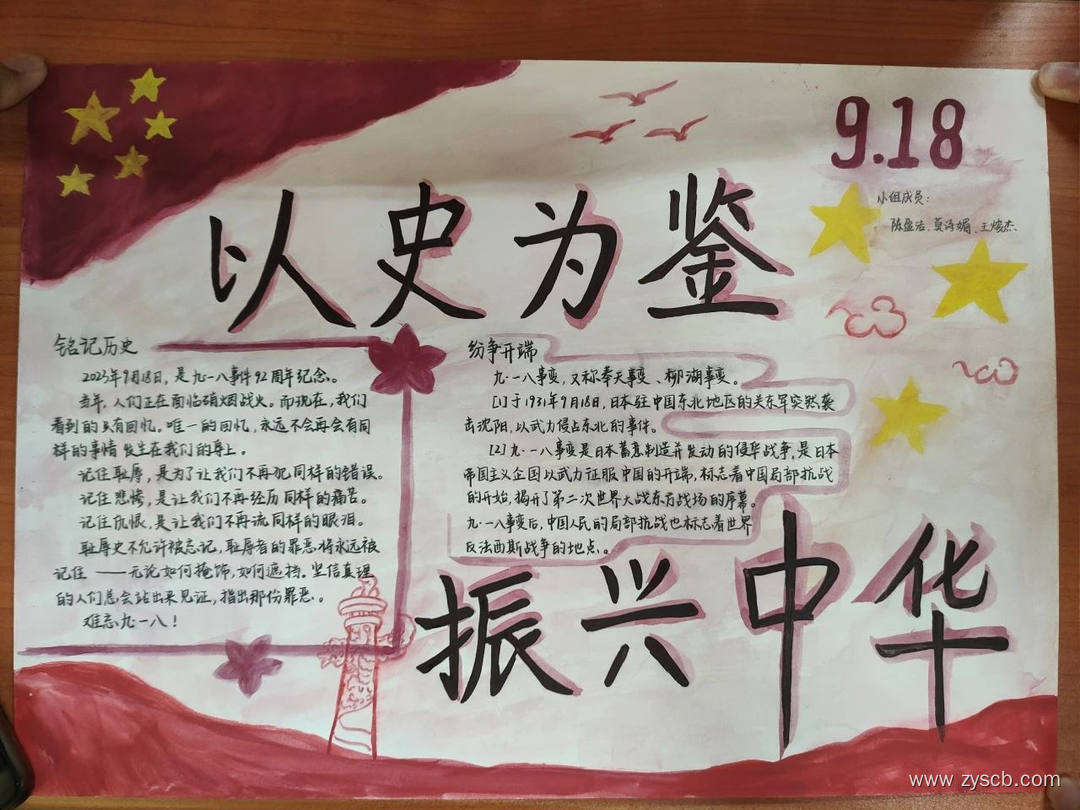 9.18
小组成员:
陈盈洁、莫诗媚、王焌杰.
以史为鉴
铭记历史
2023年9月18日,是九·一八事件92周年纪念。
当年,人们正在面临硝烟战火。而现在,我们
看到的只有回忆。唯一的回忆,永远不会再会有同
样的事情发生在我们的身上。
记住耻辱,是为了让我们不再犯同样的错误。
记住悲愤,是让我们不再经历同样的痛苦。
记住仇恨,是让我们不再流同样的眼泪。
耻辱史不允许被忘记,耻辱者的罪恶将永远被
记住——无论如何掩饰,如何遮挡。坚信真理
的人们总会站出来见证,指出那份罪恶。
难忘九·一八!
纷争开端
九·一八事变,又称奉天事变、柳湖事变。
[1]于1931年9月18日,日本驻中国东北地区的关东军突然袭
击沈阳,以武力侵占东北的事件。
[2]九·一八事变是日本蓄意制造并发动的侵华战争,是日本
帝国主义企图以武力征服中国的开端,标志着中国局部抗战
的开始,揭开了第二次世界大战东方战场的序幕。
九·一八事变后,中国人民的局部抗战也标志着世界
反法西斯战争的地点。
振兴中华
www.zyscb.com